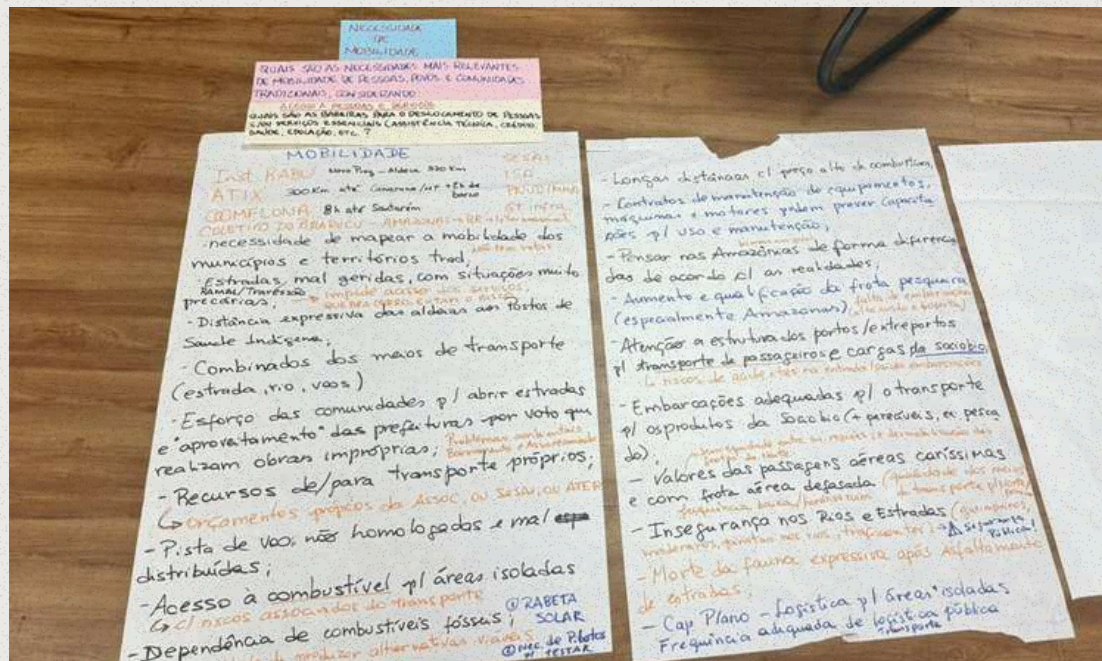 NECESSIDADE
DE
MOBILIDADE
QUAIS SÃO AS NECESSIDADES MAIS RELEVANTES
DE MOBILIDADE DE PESSOAS, POVOS E COMUNIDADES
TRADICIONAIS, CONSIDERANDO:
ACESSO A PESSOAS E SERVIÇOS
QUAIS SÃO AS BARREIRAS PARA O DESLOCAMENTO DE PESSOAS
E/OU SERVIÇOS ESSENCIAIS (ASSISTÊNCIA TÉCNICA, CRÉDITO
SAÚDE, EDUCAÇÃO, ETC. ?
MOBILIDADE
SESAI
Inst. KABU Novo Prog - Aldeia 320 Km
ISA
ATIX 300 Km até Canarana/MT +8h de
barco
PNUD/MMA
COOMFLONA 8h até Santarém
GT infra
COLETIVO DO
- necessidade de mapear a mobilidade dos
municípios e territórios trad,
- Estradas mal geridas, com situações muito
RAMAL/Travessão
precárias; impede acesso dos serviços,
- Distância expressiva das aldeias aos Postos de
Saude Indígena;
- Combinados dos meios de transporte
(estrada, rio, voos)
- Esforço das comunidades p/ abrir estradas
e "aproveitamento" das prefeituras por voto que
realizam obras impróprias; Problemas ambientais
- Recursos de/para transporte próprios;
orçamentos próprios da Assoc, ou SESAI, ou ATER
- Pista de voo, não homologadas e mal
distribuídas;
- Acesso à combustível p/ áreas isoladas
c/ riscos associados do transporte
- Dependência de combustíveis fósseis;
① RABETA
SOLAR
② Nec. de Pilotos
p/ TESTAR
produzir alternativas viáveis
- Longas distâncias c/ preço alto de combustíveis,
- Contratos de manutenção de equipamentos,
máquinas e motores podem prever capacita
ções p/ uso e manutenção;
- Pensar nas Amazônias de forma diferencia
das de acordo c/ as realidades;
- Aumento e qualificação da frota pesqueira
(especialmente Amazonas) falta de embarcação
- Atenção a estrutura dos portos/entreportos
p/ transporte de passageiros e cargas da sociobio,
riscos de acidentes na entrada/saída embarcações
- Embarcações adequadas p/ o transporte
p/ os produtos da Sociobio (+ perecíveis, ex pesca
do);
- Valores das passagens aéreas caríssimas
e com frota aérea defasada (qualidade dos meios
frequência baixa de transporte
- Insegurança nos Rios e Estradas (garimpeiros,
madeireiros, piratas nos rios, traficantes) → ⚠ Segurança
Pública!
- Morte da fauna expressiva após Asfaltamento
de estradas;
- Cap Plano - Logística p/ áreas isoladas
Frequência adequada de logística pública
transporte